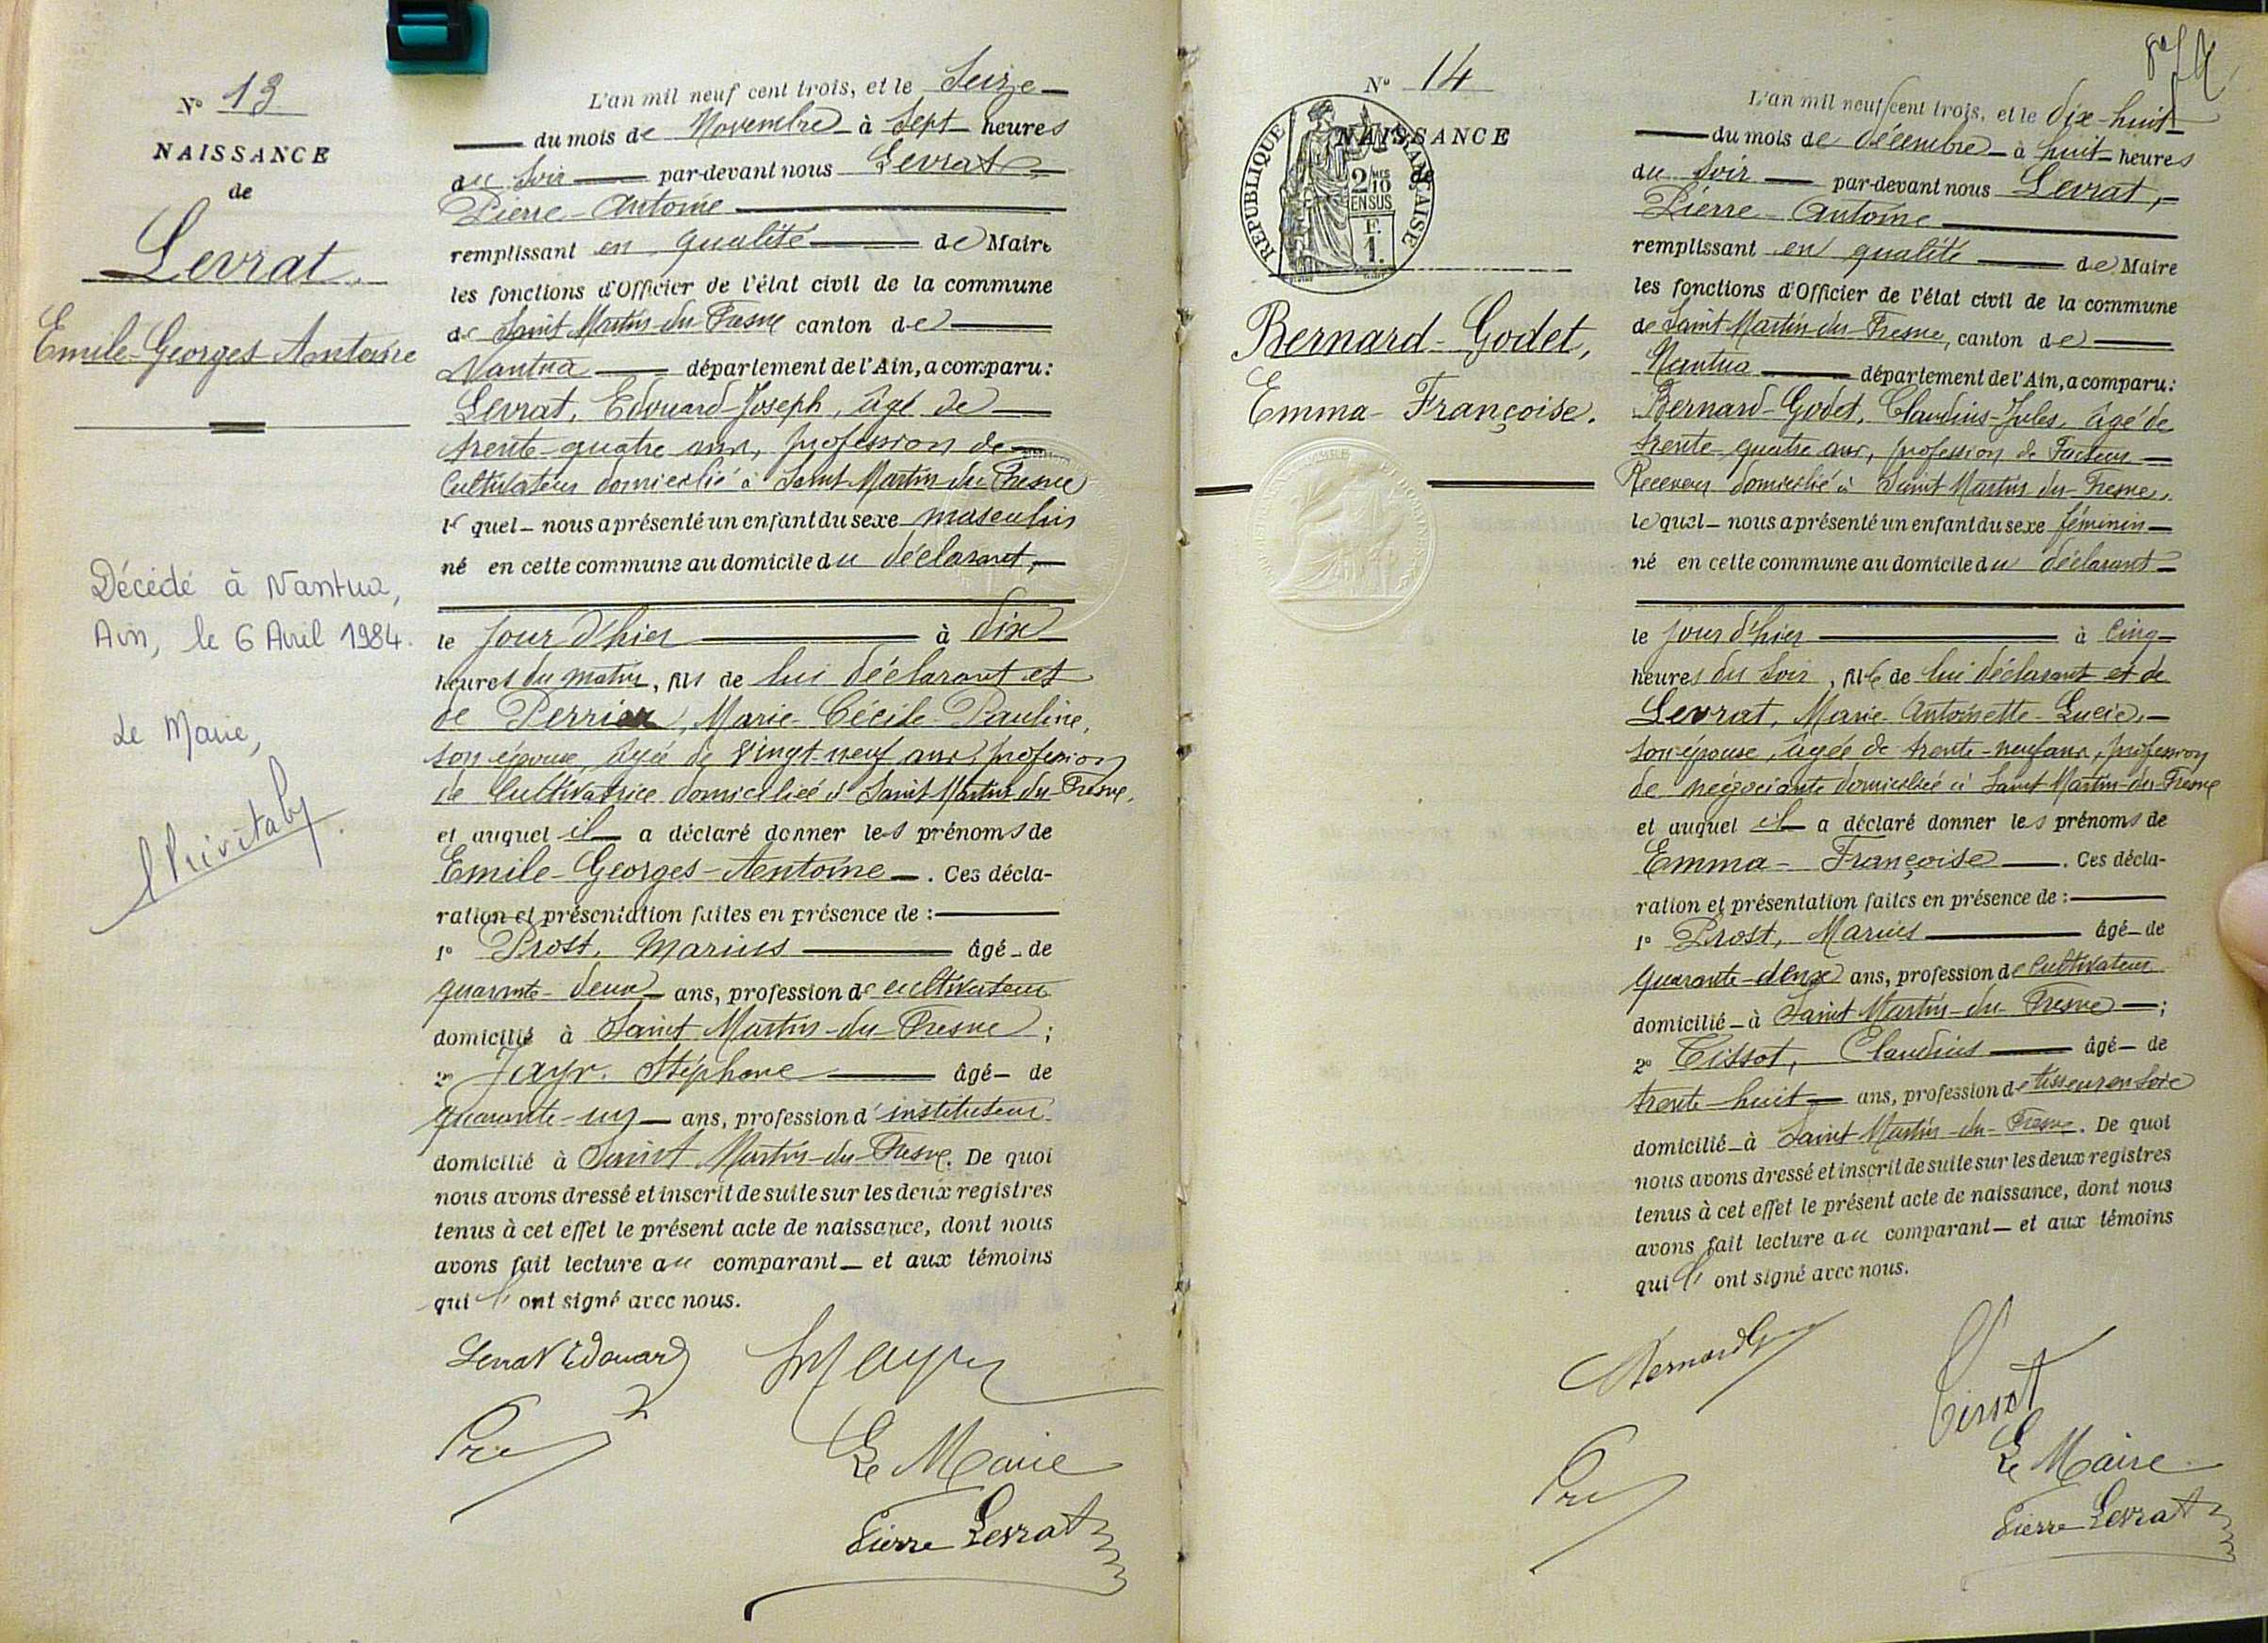 N° 13
NAISSANCE
de
Levrat
Emile-Georges-Antoine
Décédé à Nantua,
Ain, le 6 Avril 1984.
Le Maire,
L'an mil neuf cent trois, et le Seize
du mois de Novembre à Sept heures
du soir par-devant nous Levrat
Pierre-Antoine
remplissant en qualité de Maire
les fonctions d'Officier de l'état civil de la commune
de Saint Martin-du-Fresne canton de
Nantua département de l'Ain, a comparu:
Levrat, Edouard-Joseph, âgé de
trente-quatre ans, profession de
Cultivateur domicilié à Saint Martin-du-Fresne
lequel nous a présenté un enfant du sexe masculin
né en cette commune au domicile du déclarant,
le jour d'hier à dix
heures du matin, fils de lui déclarant et
de Perrier, Marie-Cécile-Pauline,
son épouse, âgée de vingt-neuf ans, profession
de Cultivatrice domiciliée à Saint Martin-du-Fresne,
et auquel il a déclaré donner les prénoms de
Emile-Georges-Antoine. Ces décla-
ration et présentation faites en présence de :
1° Prost, Marius âgé de
quarante-deux ans, profession de cultivateur
domicilié à Saint Martin-du-Fresne ;
2° Jayr, Stéphane âgé de
quarante-un ans, profession d'instituteur
domicilié à Saint Martin-du-Fresne. De quoi
nous avons dressé et inscrit de suite sur les deux registres
tenus à cet effet le présent acte de naissance, dont nous
avons fait lecture au comparant et aux témoins
qui l'ont signé avec nous.
Levrat Edouard
Jayr
Le Maire
Pierre Levrat
N° 14
NAISSANCE
de
RÉPUBLIQUE FRANÇAISE
2/10 MES
EN SUS
F.
1.
Bernard-Godet,
Emma-Françoise.
L'an mil neuf cent trois, et le dix-huit
du mois de décembre à huit heures
du soir par-devant nous Levrat,
Pierre-Antoine
remplissant en qualité de Maire
les fonctions d'Officier de l'état civil de la commune
de Saint Martin-du-Fresne, canton de
Nantua département de l'Ain, a comparu:
Bernard-Godet, Claudius-Jules, âgé de
trente-quatre ans, profession de Facteur
Receveur domicilié à Saint Martin-du-Fresne,
lequel nous a présenté un enfant du sexe féminin
né en cette commune au domicile du déclarant
le jour d'hier à cinq
heures du soir, fille de lui déclarant et de
Levrat, Marie-Antoinette-Lucie,
son épouse, âgée de trente-neuf ans, profession
de négociante domiciliée à Saint Martin-du-Fresne
et auquel il a déclaré donner les prénoms de
Emma-Françoise. Ces décla-
ration et présentation faites en présence de :
1° Prost, Marius âgé de
quarante-deux ans, profession de cultivateur
domicilié à Saint Martin-du-Fresne ;
2° Tissot, Claudius âgé de
trente-huit ans, profession de tisseur en soie
domicilié à Saint Martin-du-Fresne. De quoi
nous avons dressé et inscrit de suite sur les deux registres
tenus à cet effet le présent acte de naissance, dont nous
avons fait lecture au comparant et aux témoins
qui l'ont signé avec nous.
Bernard G
Tissot
Le Maire
Pierre Levrat